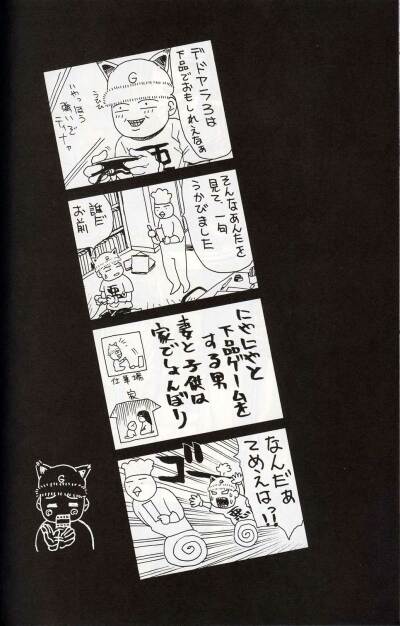 デドアラ3は
下品でおもしれえなぁ
うふふ
いやっほう
動いて
ティナァ
G
そんなあんたを
見て、一句
うかびました
誰だ
お前
男
にやにやと
下品ゲームを
する男
妻と子供は
家でしょんぼり
仕事場
家
なんだぁ
てめえは?!
ゴー
男
G